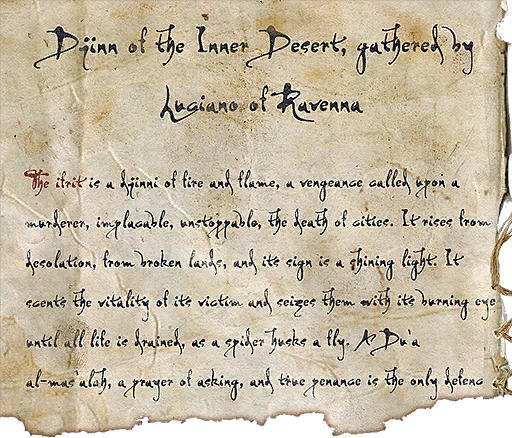 Djinn of the Inner Desert, gathered by
Luciano of Ravenna
The ifrit is a djinni of fire and flame, a vengeance called upon a
murderer, implacable, unstoppable, the death of cities. It rises from
desolation, from broken lands, and its sign is a shining light. It
scents the vitality of its victim and seizes them with its burning eye
until all life is drained, as a spider husks a fly. A Du'a
al-mas'alah, a prayer of asking, and true penance is the only defenc